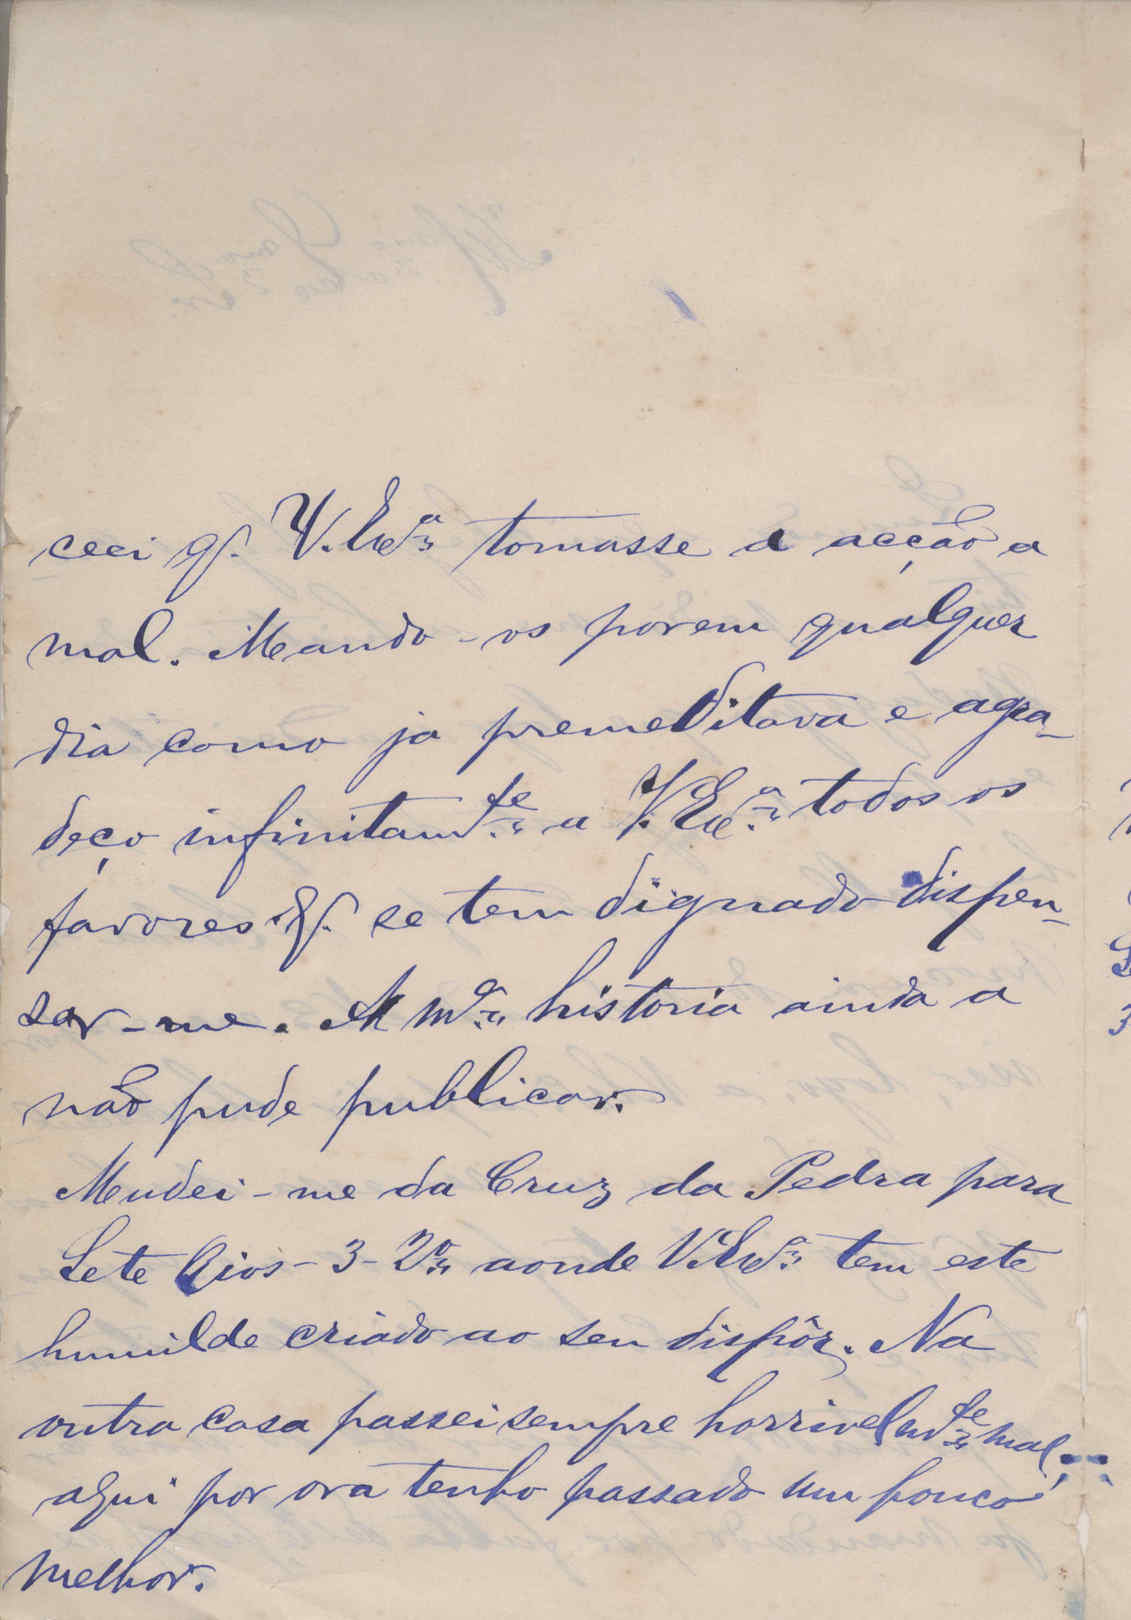 ceei q. V. Exª tomasse a acção a
mal. Mando-os porem qualquer
dia como ja premeditava e agra-
deço infinitamte a V. Exª todos os
favores q. se tem dignado dispen-
sar-me. A mª historia ainda a
não pude publicar.
Mudei-me da Cruz da Pedra para
Sete Rios-3-2º aonde V. Exª tem este
humilde criado ao seu dispôr. Na
outra casa passei sempre horrivelmte mal,
aqui por ora tenho passado um pouco
melhor.